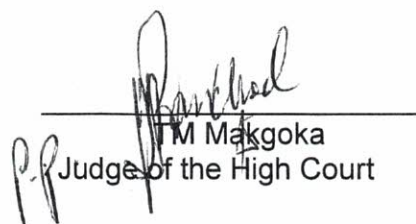 TM Makgoka
p.p Judge of the High Court